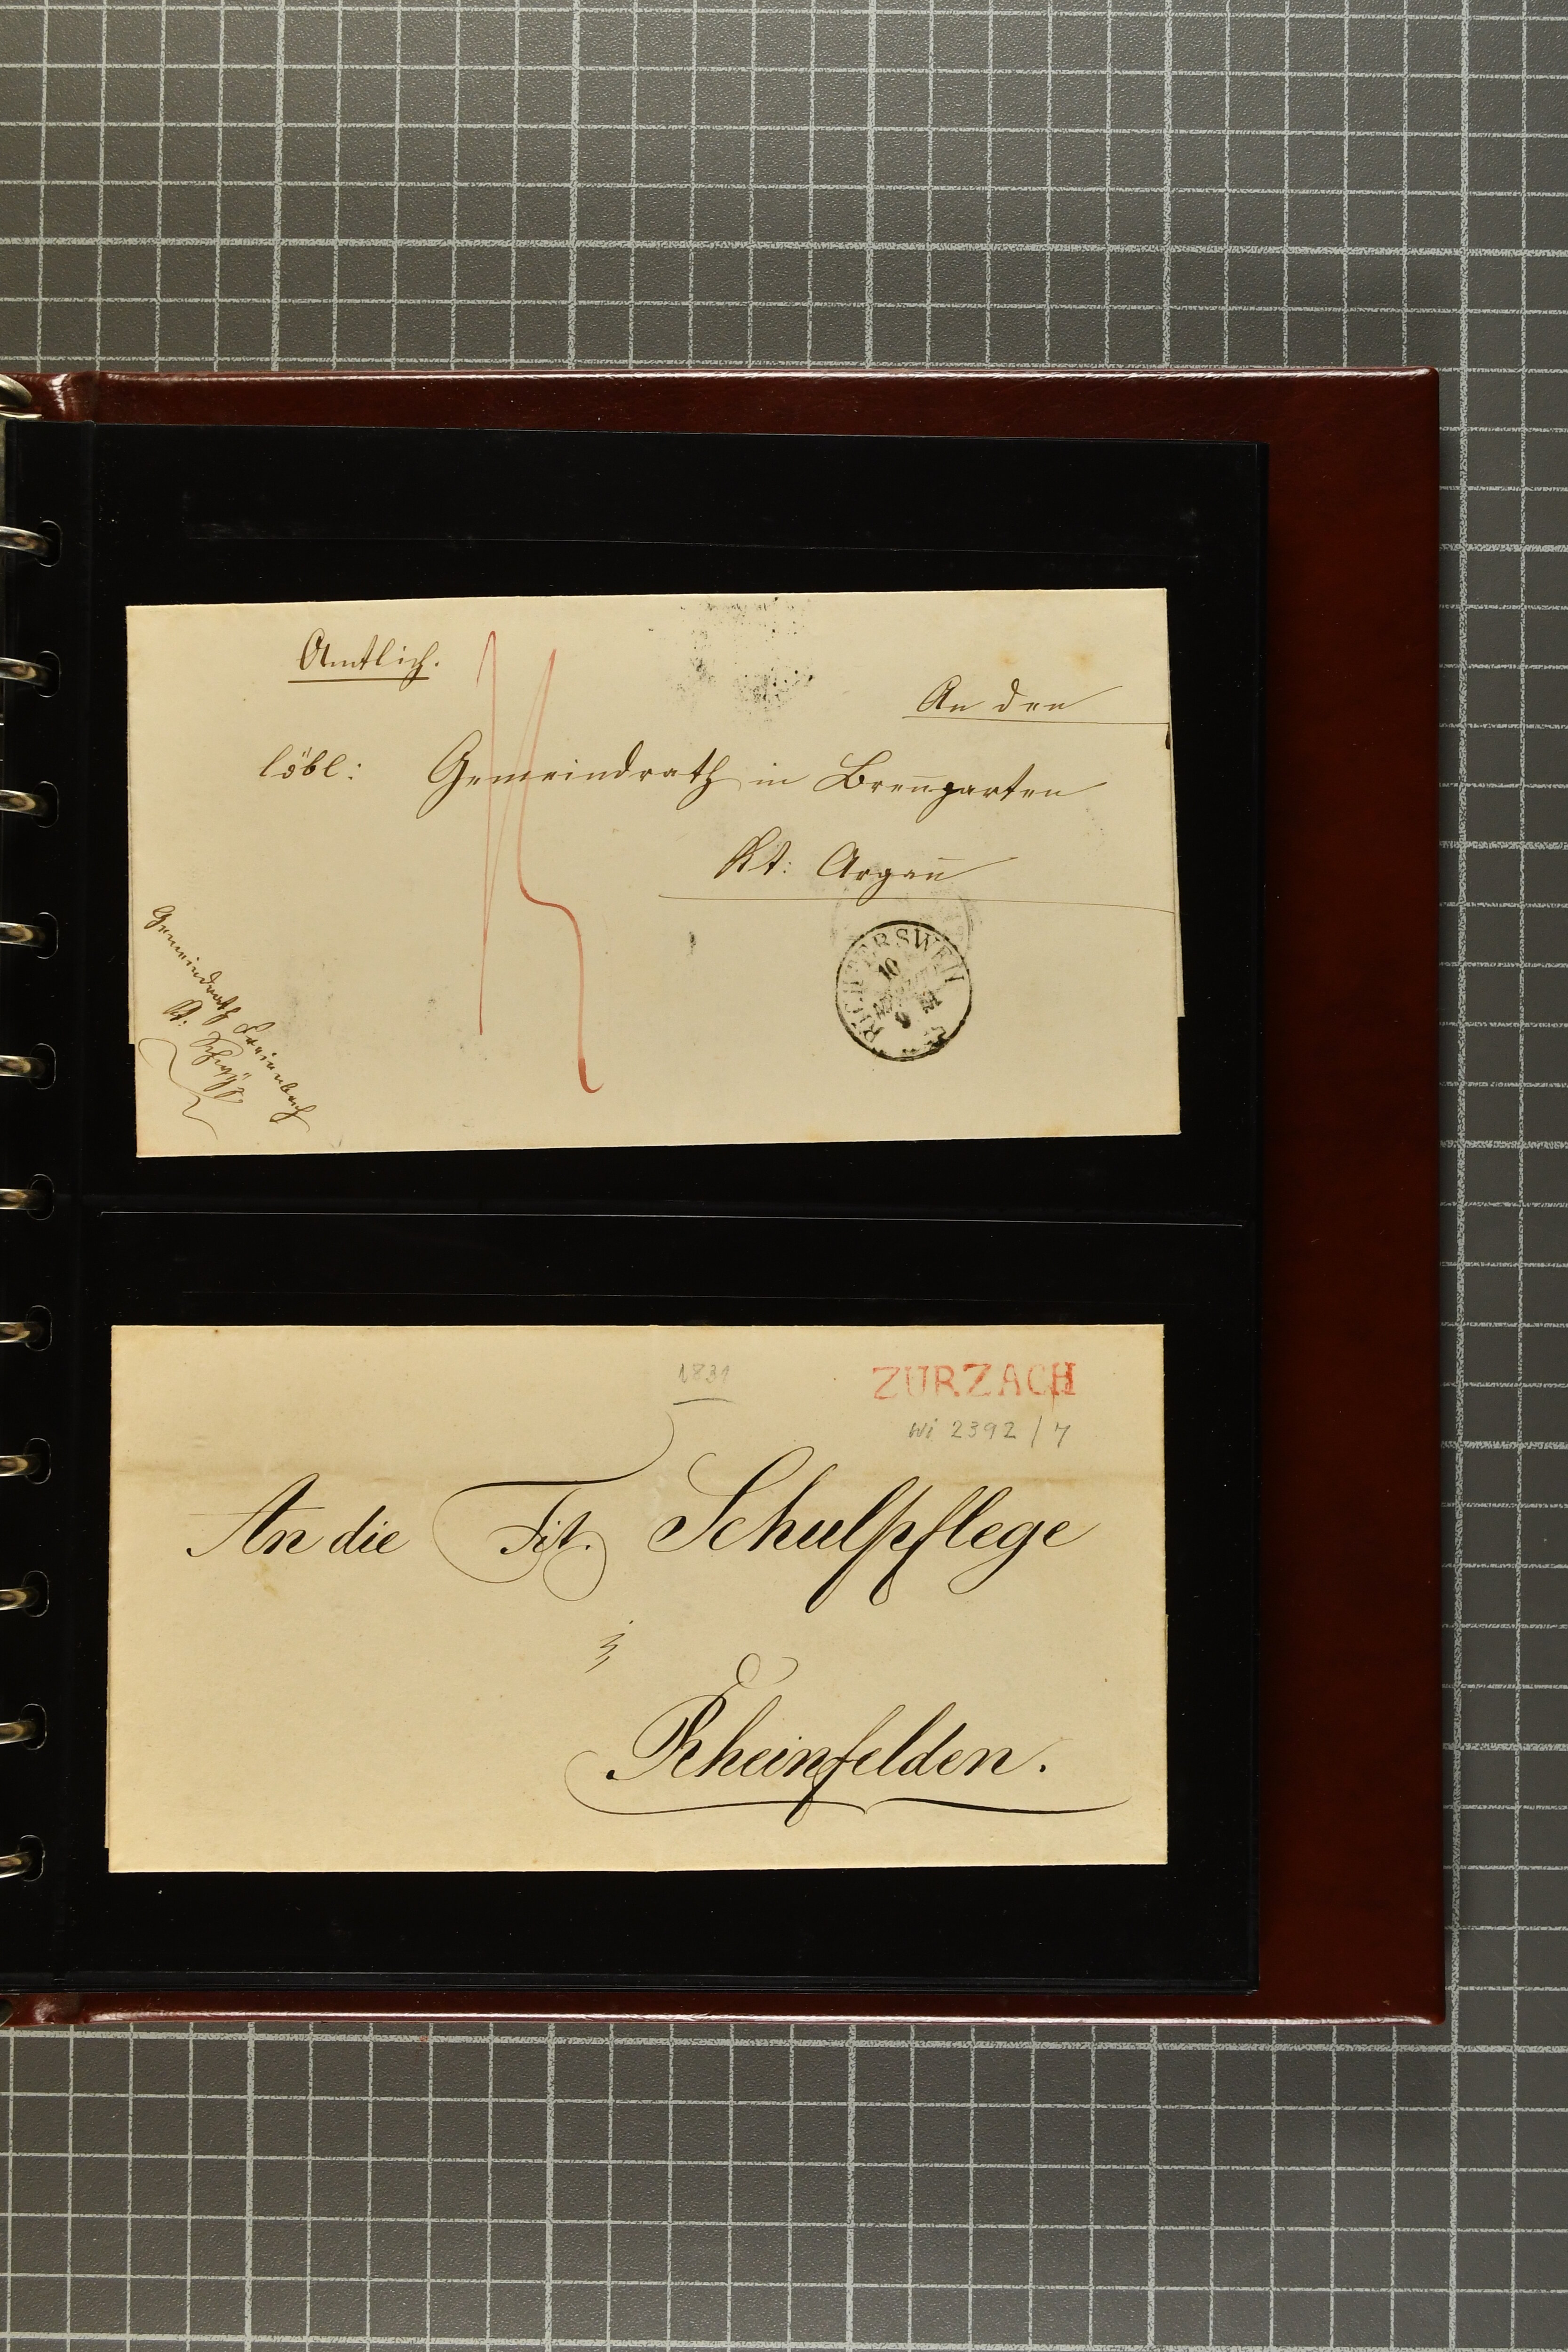 Amtlich.
An den
löbl: Gemeindrath in Bremgarten
Kt: Argau
RICHTERSWEIL
10
9
Gemeindrath Freienbach
Kt: Schwÿz
1831
ZURZACH
Wi 2392/7
An die Tit. Schulpflege
Rheinfelden.